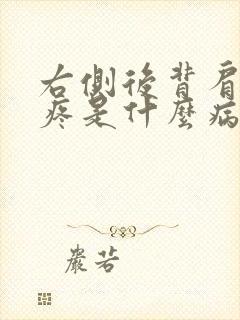 右側後背肩
疼是什麼病
嚴若